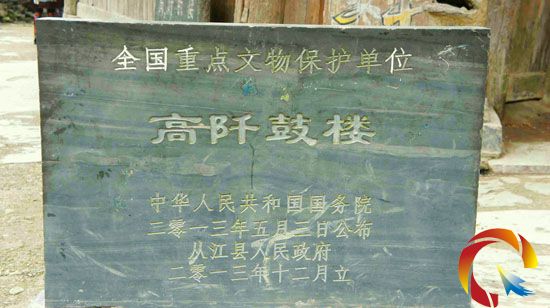 全国重点文物保护单位
高阡鼓楼
中华人民共和国国务院
三〇一三年五月三日公布
从江县人民政府
二〇一三年十二月立